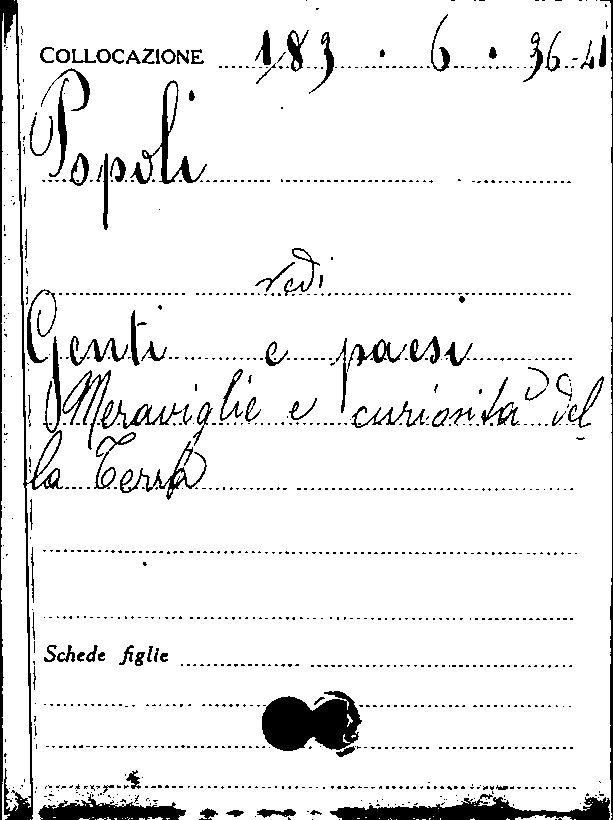 COLLOCAZIONE 183 . 6 . 36-41
Popoli
vedi
Genti e paesi
Meraviglie e curiosità del
la Terra
Schede figlie